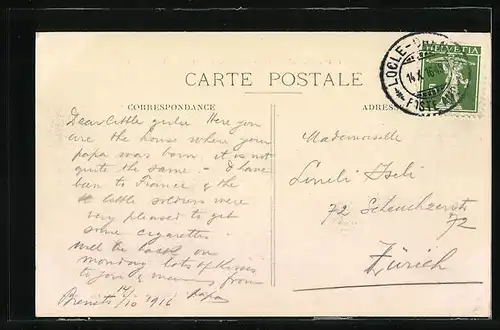 CARTE POSTALE
CORRESPONDANCE
ADRES
HELVETIA
LOCLE
14.X.16
Dear little girlie. Here you
are the house where your
papa was born. it is not
quite the same. - I have
been to France & the
little soldiers were
very pleased to get
some cigarettes.
Will be back on
monday lots of Kisses
to you & mummy from
Brenets 14/10 1916 Papa
Mademoiselle
Iseli
72 Scheuchzerstr
72
Zürich